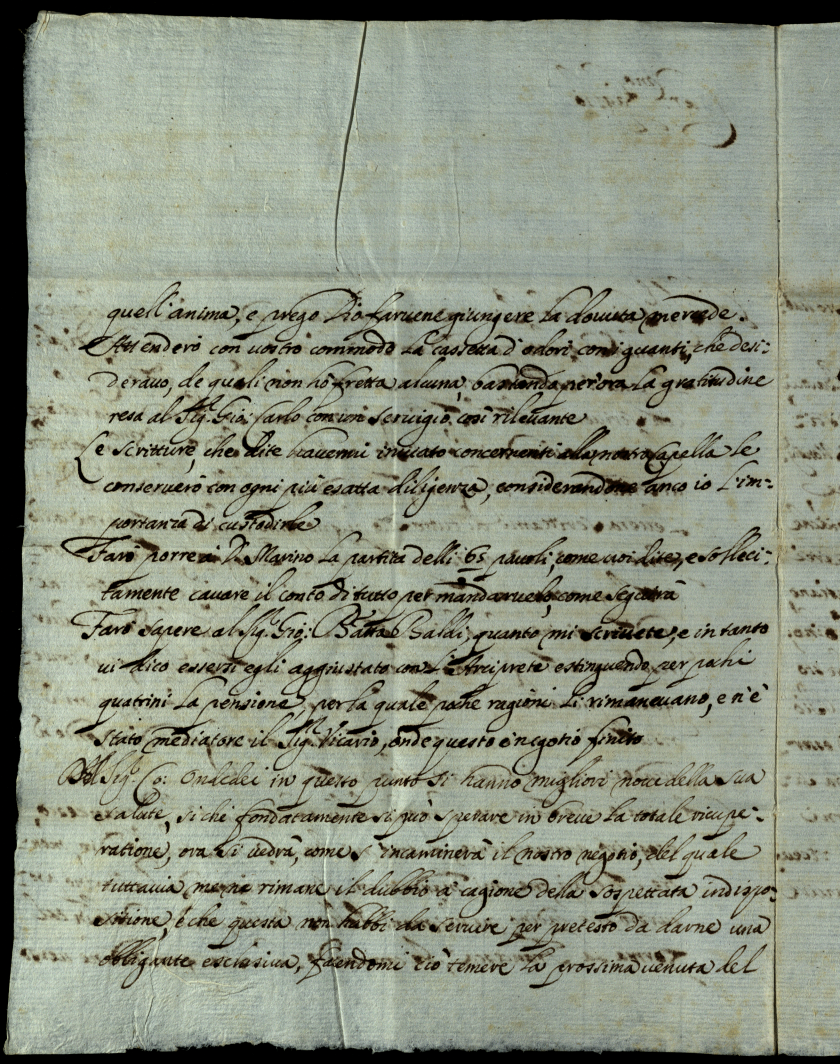 quell'anima, e prego Dio farvene giungere la dovuta mercede.
Attenderò con vostro commodo la cassetta d'odori con i guanti, che desi:
deravo, de quali non hò fretta alcuna, bastando per ora la gratitudine
resa al Sig.r Gio: Carlo con un servigio così rilevante
Le scritture, che dite havermi inviato concernenti alla nostra Capella le
conserverò con ogni più esatta diligenza, considerandone anco io l'im=
portanza di custodirle
Farò porre à D. Marino la partita delli 65 pavoli, come voi dite, e solleci:
tamente cavare il conto di tutto per mandarvelo, come seguirà
Farò sapere al Sig.r Gio: Batta Baldi, quanto mi scrivete, e in tanto
vi dico essersi egli aggiustato con l'Arciprete estinguendo per pochi
quatrini la pensione, per la quale poche ragioni li rimanevano, e n'è
stato mediatore il Sig.r Vicario, onde questo è negotio finito
Del Sig.r Co: Ondedei in questo punto si hanno migliori nove della sua
salute, si che fondatamente si può sperare in breve la totale ricupe:
ratione, ora si vedrà, come s'incaminerà il nostro negotio, del quale
tuttavia me ne rimane il dubbio à cagione della sospettata indispo:
sitione, e che questa non habbi da servire per pretesto da darne una
obligante esclusiva, facendomi ciò temere la prossima venuta del